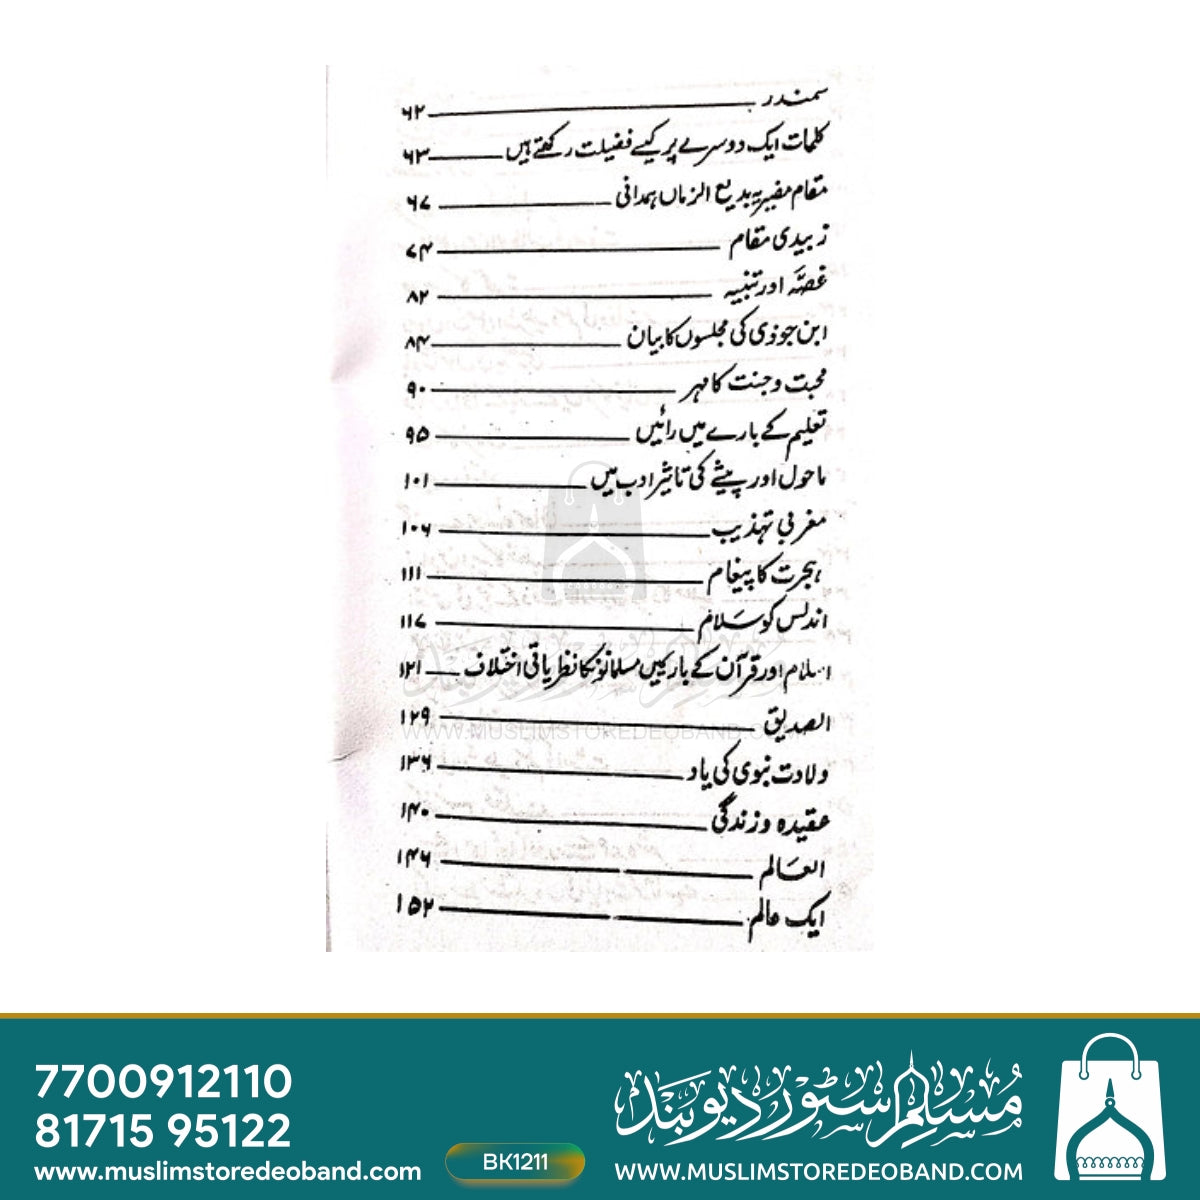 سمندر ۶۲
کلمات ایک دوسرے پر کیسے فضیلت رکھتے ہیں ۶۳
مقام مضیریہ بدیع الزماں ہمدانی ۶۷
زبیدی مقام ۷۴
غصّہ اور تنبیہ ۸۲
ابن جوذی کی مجلسوں کا بیان ۸۴
محبت و جنت کا مہر ۹۰
تعلیم کے بارے میں رائیں ۹۵
ماحول اور پیشے کی تاثیر ادب میں ۱۰۱
مغربی تہذیب ۱۰۶
ہجرت کا پیغام ۱۱۱
اندلس کو سلام ۱۱۷
اسلام اور قرآن کے بارے میں مسلمانوں کا نظریاتی اختلاف ۱۲۱
الصدیق ۱۲۹
ولادت نبوی کی یاد ۱۳۶
عقیدہ و زندگی ۱۴۰
العالم ۱۴۶
ایک عالم ۱۵۲
WWW.MUSLIMSTOREDEOBAND.COM
7700912110
81715 95122
www.muslimstoredeoband.com
BK1211
مسلم سٹور دیوبند
WWW.MUSLIMSTOREDEOBAND.COM